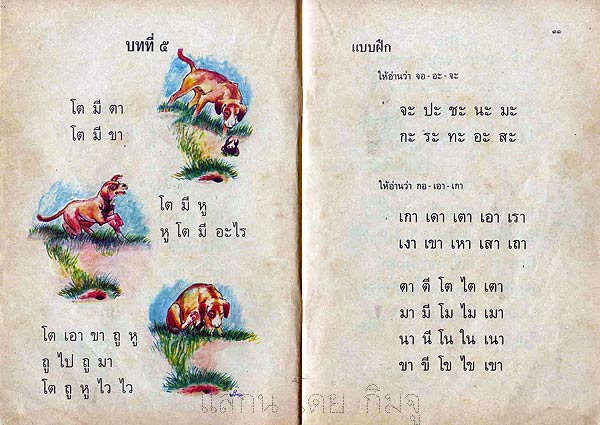 บทที่ ๕
โต มี ตา
โต มี ขา
โต มี หู
หู โต มี อะไร
โต เอา ขา ถู หู
ถู ไป ถู มา
โต ถู หู ไว ไว
๑๑
แบบฝึก
ให้อ่านว่า จอ - อะ - จะ
จะ ปะ ชะ นะ มะ
กะ ระ ทะ อะ สะ
ให้อ่านว่า กอ - เอา - เกา
เกา เดา เตา เอา เรา
เงา เขา เหา เสา เถา
ตา ตี โต ไต เตา
มา มี โม ไม เมา
นา นี โน ใน เนา
ขา ขี โข ไข เขา
แสกน โดย กิมจู